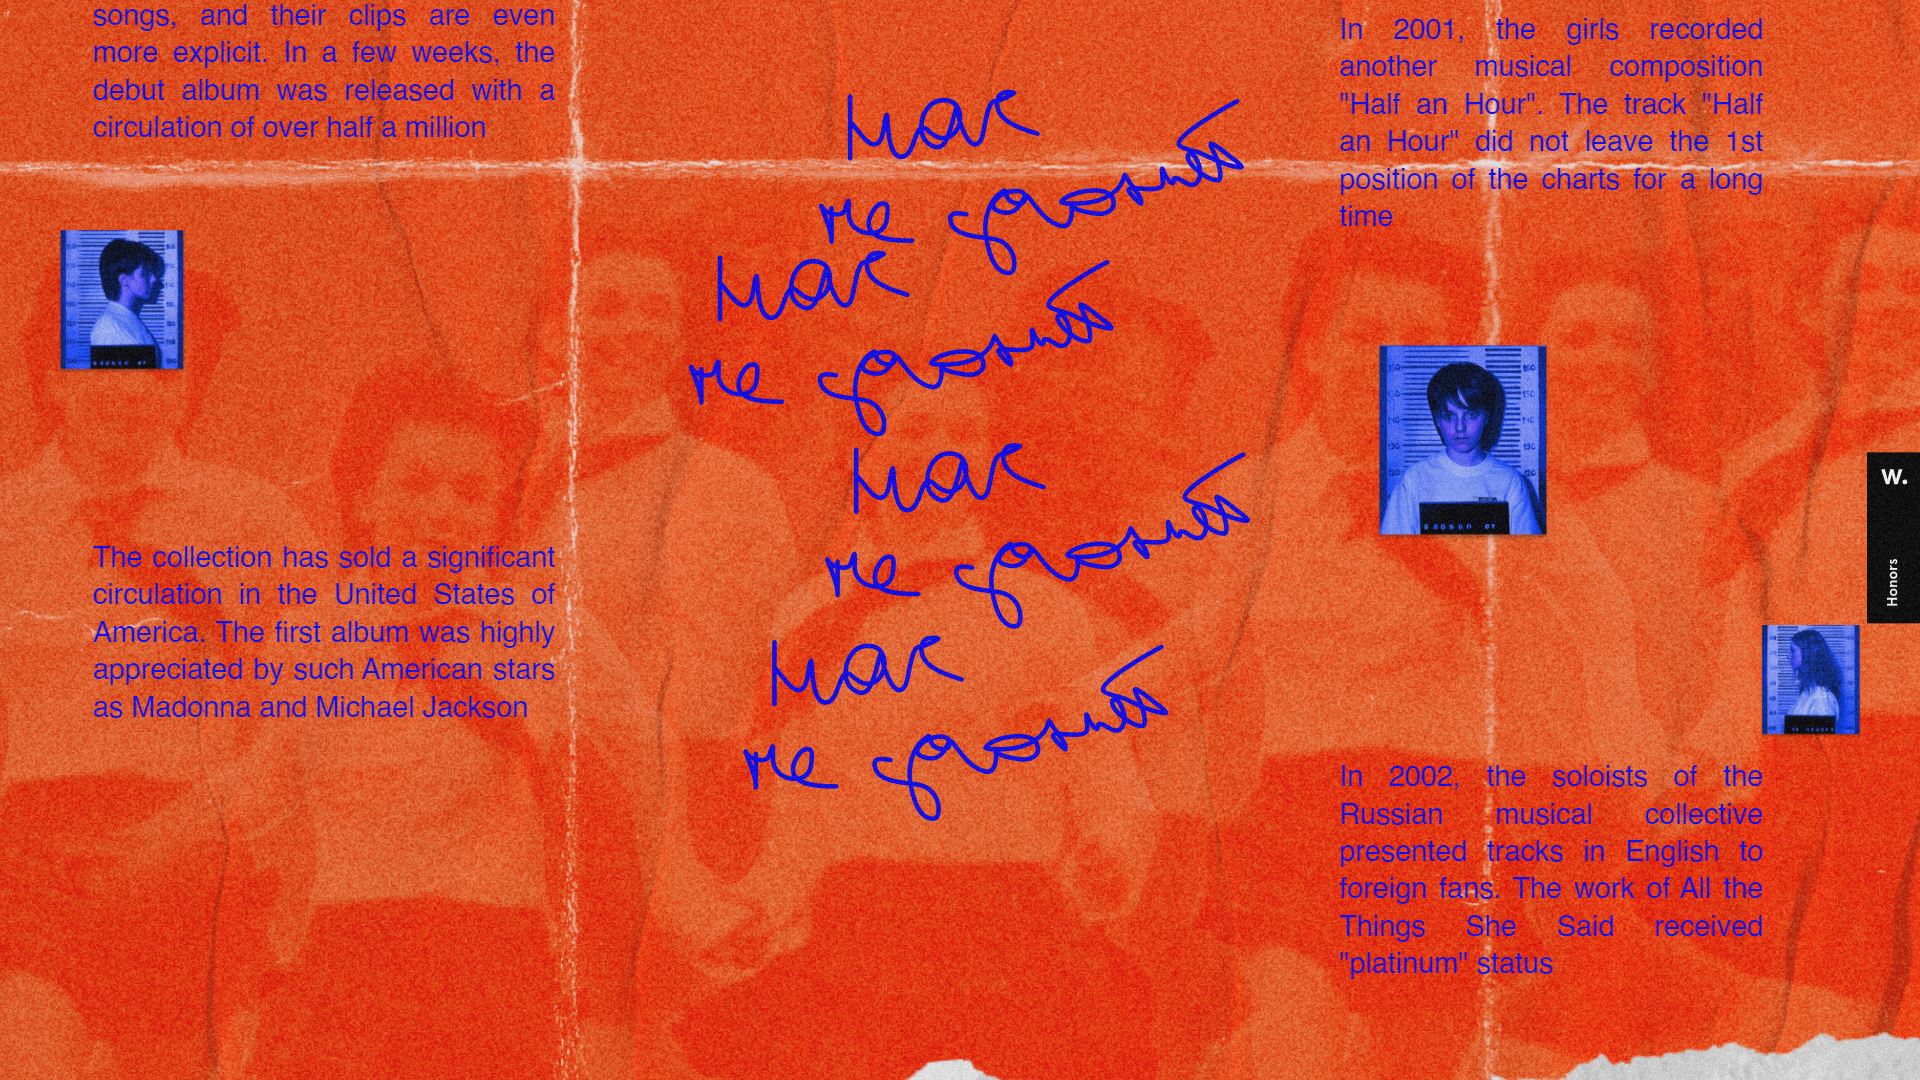 songs, and their clips are even
more explicit. In a few weeks, the
debut album was released with a
circulation of over half a million
The collection has sold a significant
circulation in the United States of
America. The first album was highly
appreciated by such American stars
as Madonna and Michael Jackson
нас
не догонят
нас
не догонят
нас
не догонят
нас
не догонят
In 2001, the girls recorded
another musical composition
"Half an Hour". The track "Half
an Hour" did not leave the 1st
position of the charts for a long
time
In 2002, the soloists of the
Russian musical collective
presented tracks in English to
foreign fans. The work of All the
Things She Said received
"platinum" status
W.
Honors